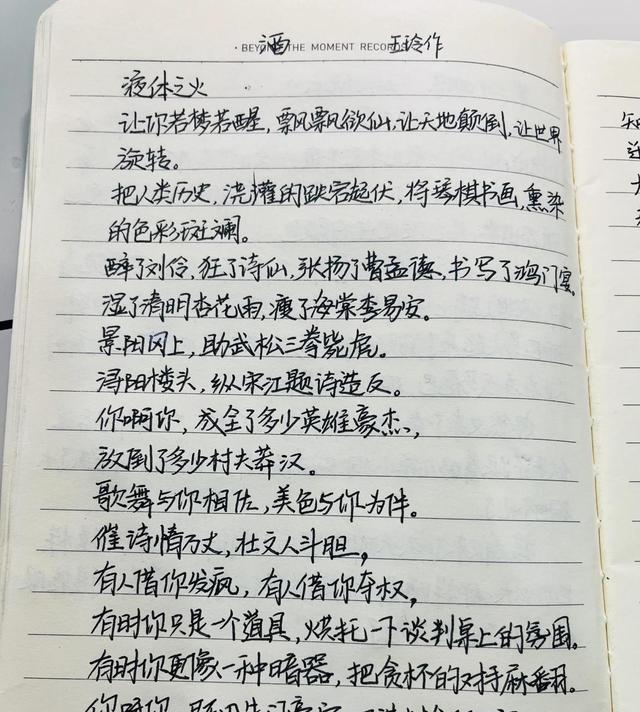 酒 王玲作
BEYOND THE MOMENT RECORDS
液体之火
让你若梦若醒，飘飘欲仙，让天地颠倒，让世界
旋转。
把人类历史，浇灌的跌宕起伏，将琴棋书画，熏染
的色彩斑斓。
醉了刘伶，狂了诗仙，张扬了曹孟德，书写了鸿门宴。
湿了清明杏花雨，瘦了海棠李易安。
景阳冈上，助武松三拳毙虎。
浔阳楼头，纵宋江题诗造反。
你啊你，成全了多少英雄豪杰，
放倒了多少村夫莽汉。
歌舞与你相佐，美色与你为伴。
催诗情万丈，壮文人斗胆，
有人借你发疯，有人借你夺权，
有时你只是一个道具，烘托一下谈判桌上的氛围。
有时你更像一种暗器，把贪杯的对手麻翻。
你啊你，